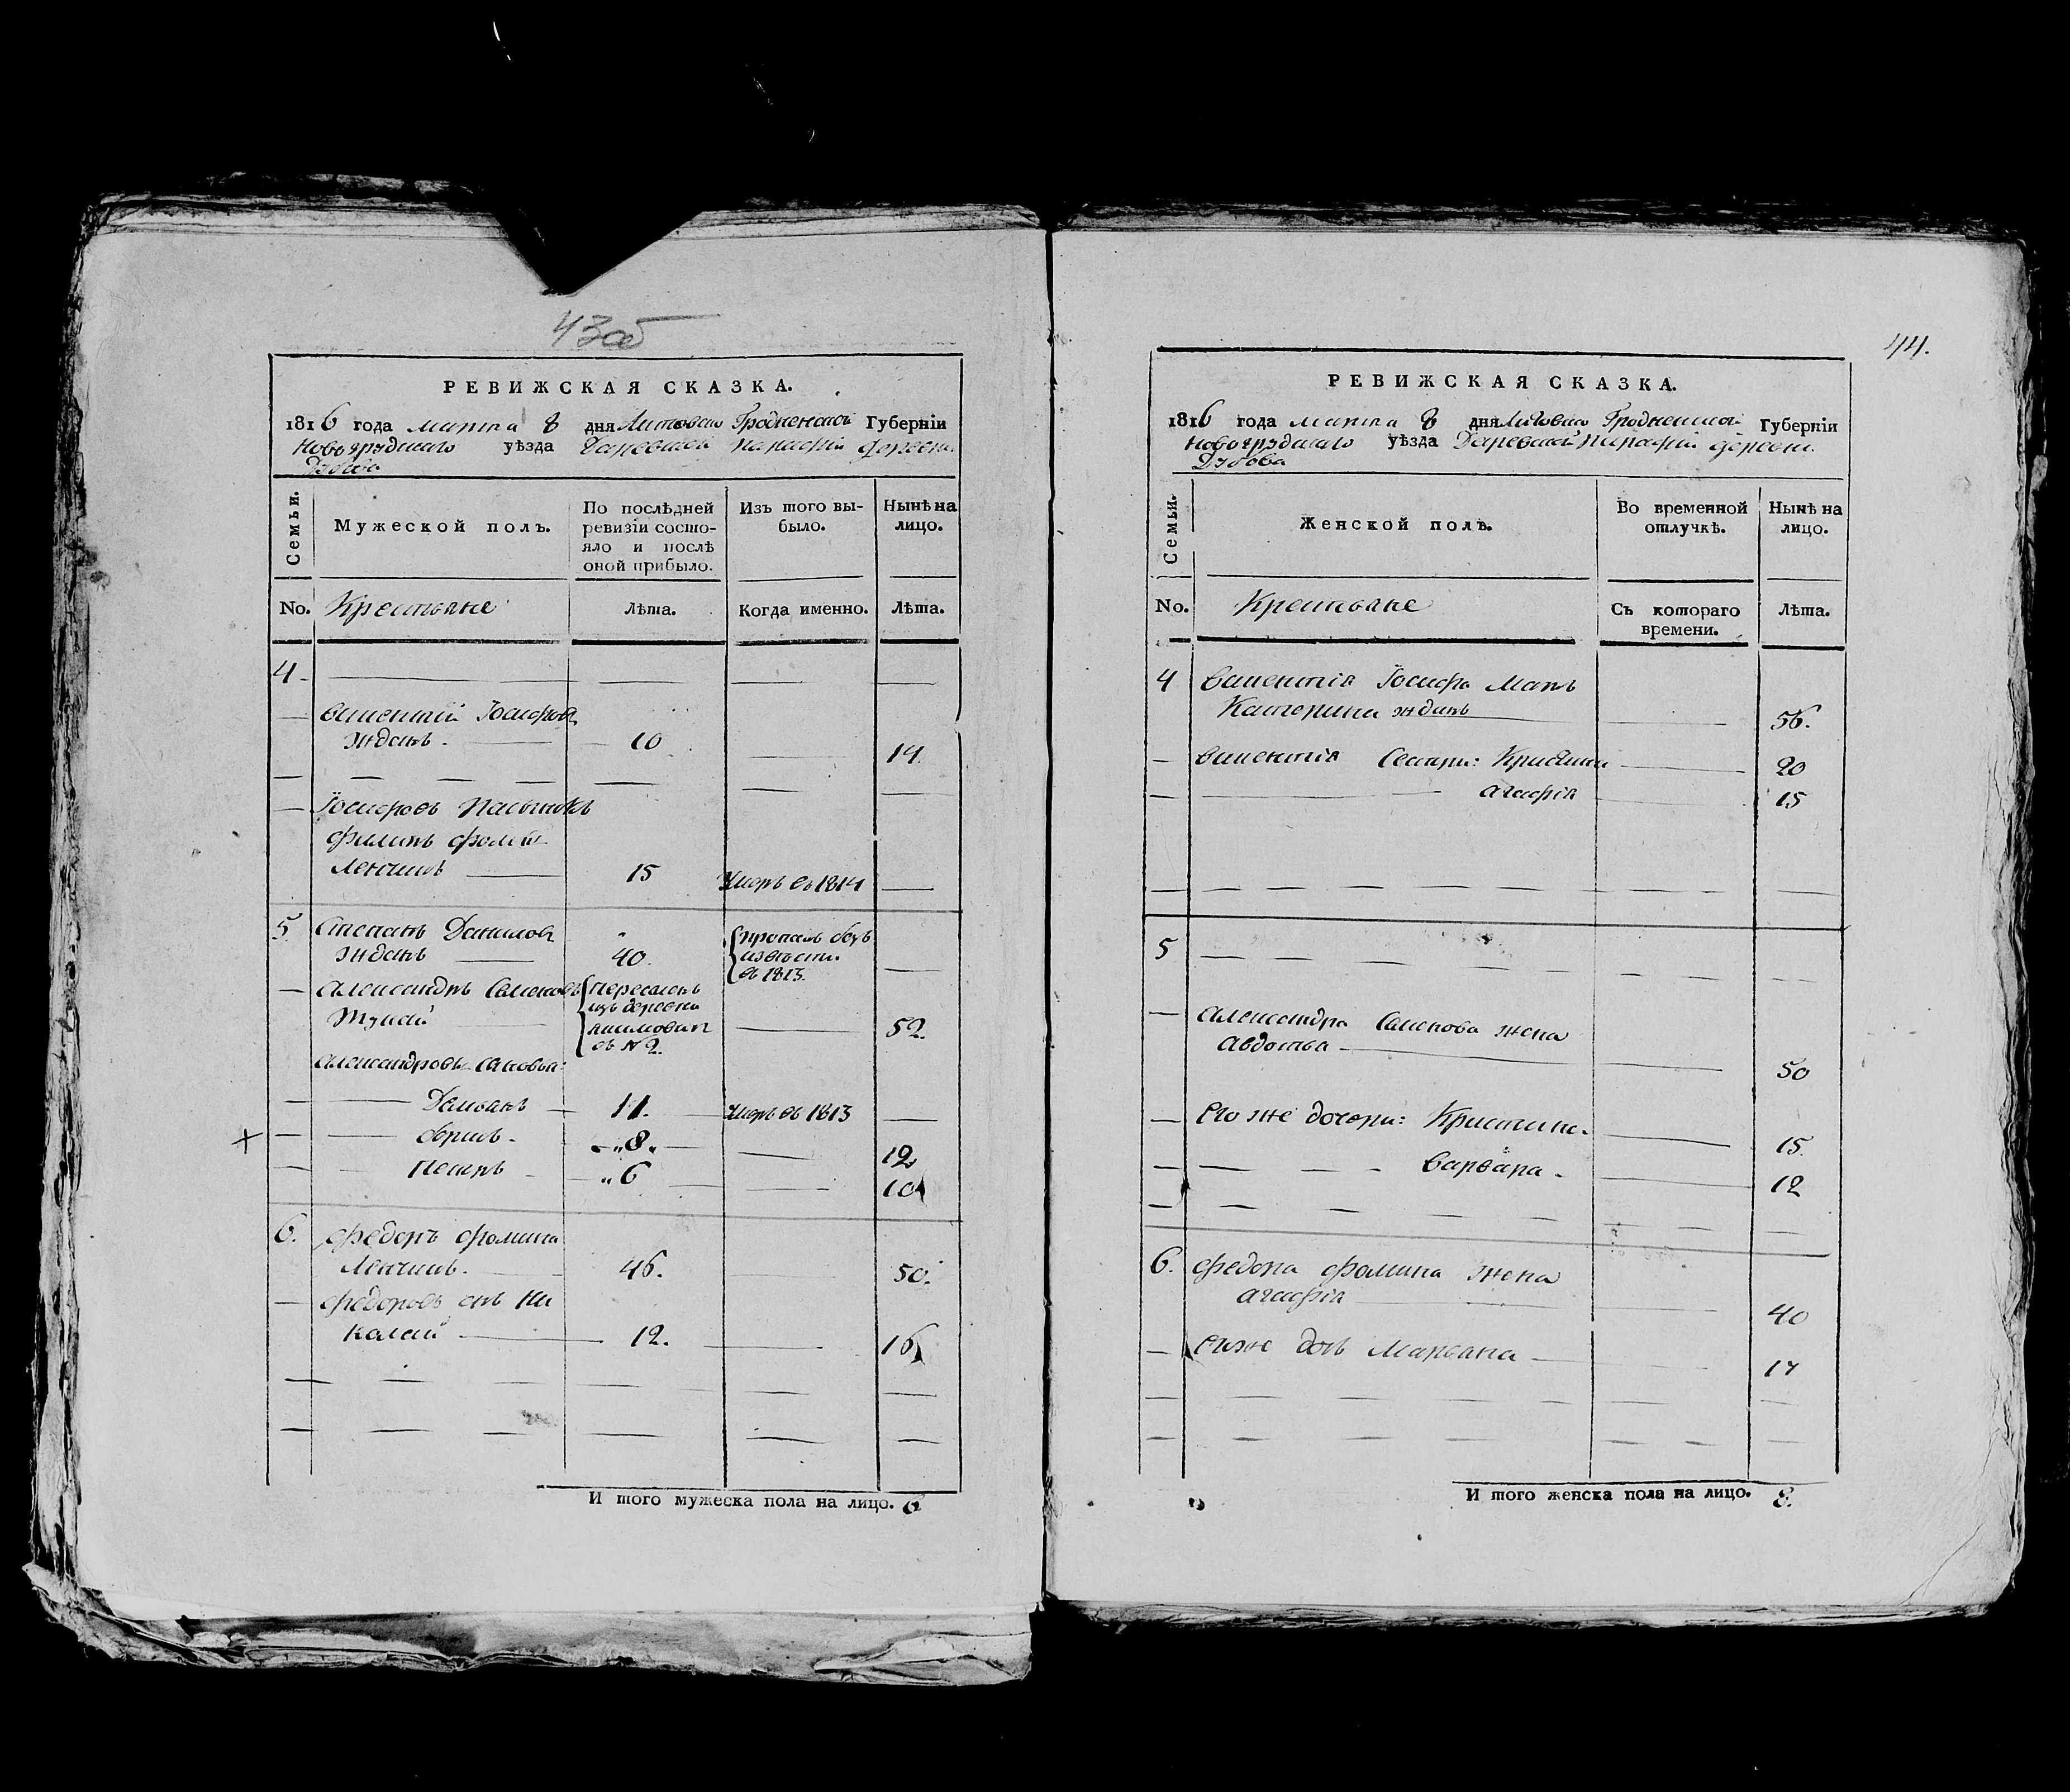 43об
РЕВИЖСКАЯ СКАЗКА.
1816 года марта 8 дня Литовско Гродненской Губерніи
Новогрудскаго уѣзда Даревской Парафіи деревни
Дубова
Семьи.
Мужеской полъ.
По послѣдней ревизіи состояло и послѣ оной прибыло.
Изъ того выбыло.
Нынѣ на лицо.
No. Крестьяне Лѣта. Когда именно. Лѣта.
4
Викентій Іосифов
Ждань 10 14.
Іосифовъ Пасынокъ
Филипъ
Ленчикъ 15 Умеръ въ 1814
5 Степанъ Данилов
Ждань 40. пропалъ безъ
въ 1813.
Александръ Семеновъ
изъ деревни
52.
въ N 2.
Александровы сыновья:
Демьянъ 11. Умеръ въ 1813
+ Борисъ 8 12
Петръ 6 10
6. Федоръ Фомина
Ленчикъ. 46. 50.
Федоровъ снъ Ни
колай 12. 16
И того мужеска пола на лицо. 6
44.
РЕВИЖСКАЯ СКАЗКА.
1816 года марта 8 дня Литовско Гродненской Губерніи
Новогрудскаго уѣзда Даревской Парафіи деревни
Дубова
Семьи.
Женской полъ.
Во временной отлучкѣ.
Нынѣ на лицо.
No. Крестьяне Съ котораго времени. Лѣта.
4 Викентія Іосифа Мать
Катерина Ждань 56.
Викентія Сестри: Кристина 20
Агафія 15
5
Александра Семенова жена
Авдотья 50
Его же дочери: Кристина 15.
Варвара 12
6. Федора Фомина жена
Агафія 40
Его же дочь Марьяна 17
И того женска пола на лицо. 8.